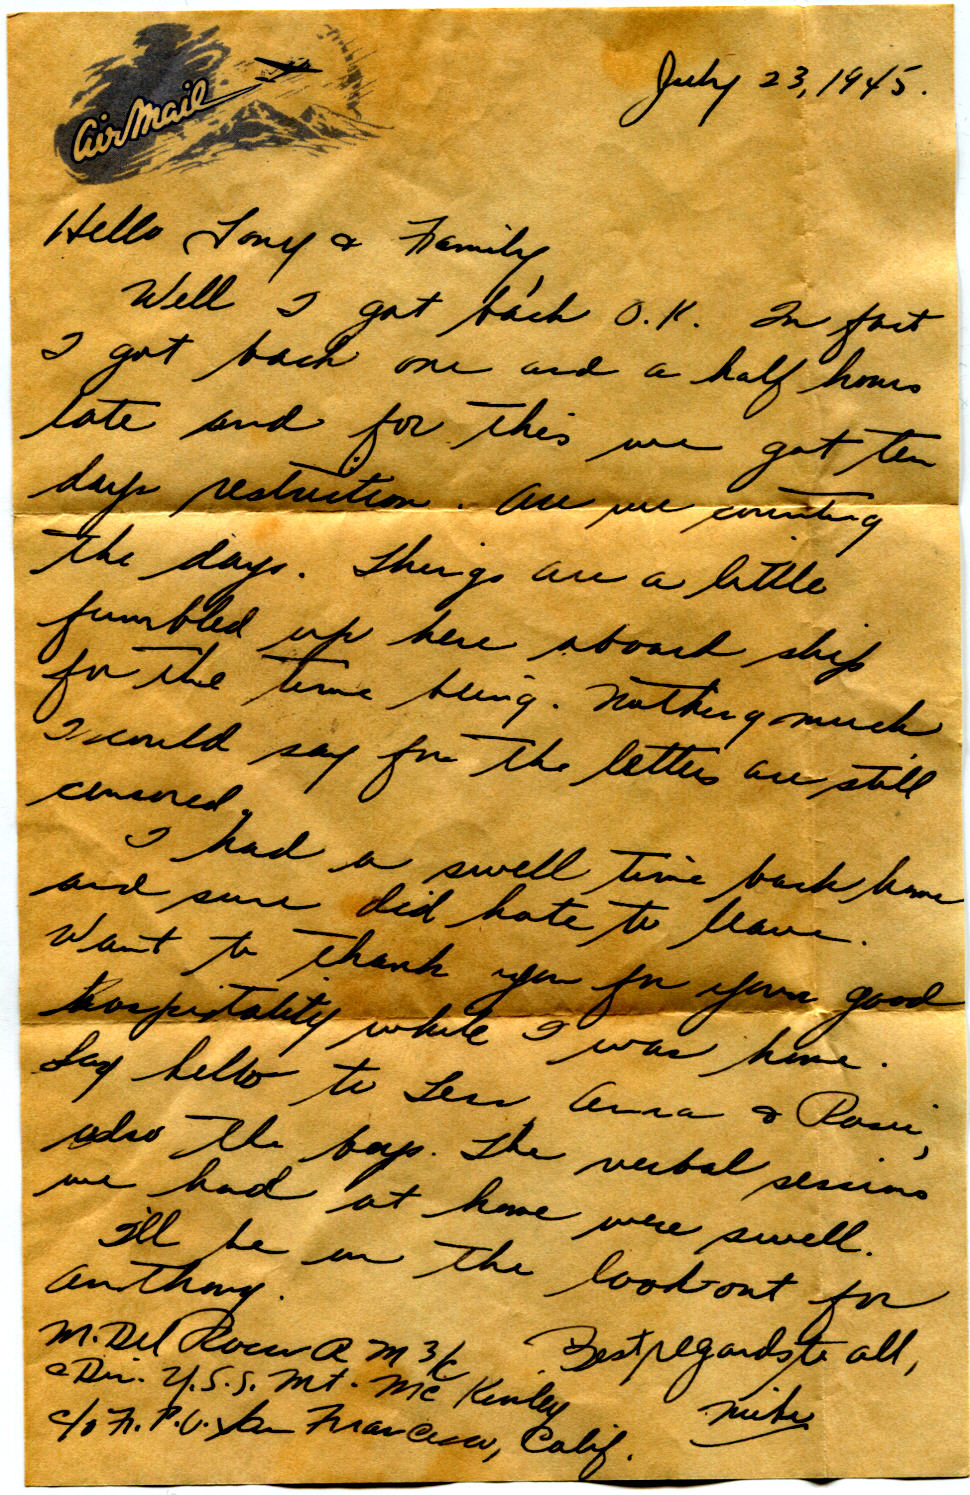 Air Mail
July 23, 1945.
Hello Tony & Family
Well I got back O.K. In fact
I got back one and a half hours
late and for this we got ten
days restriction. Are we counting
the days. Things are a little
fumbled up here aboard ship
for the time being. Nothing much
I could say for the letters are still
censored.
I had a swell time back home
and sure did hate to leave.
Want to thank you for your good
hospitality while I was home.
Say hello to Less Anna & Rosie,
also the boys. The verbal sessions
we had at home were swell.
I'll be on the lookout for
Anthony.
Best regards to all,
Mike
M. Del Rocco R M 3/c
Div. U.S.S. Mt. McKinley
c/o F.P.O. San Francisco, Calif.